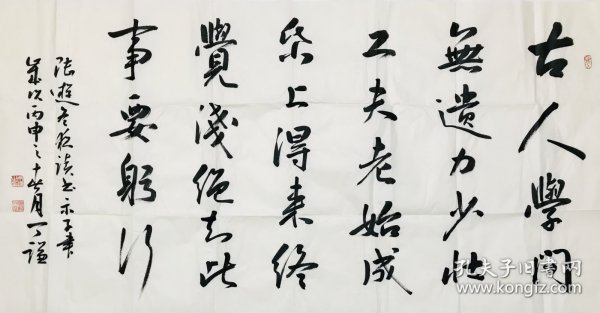 古人學問
無遺力少壯
工夫老始成
帋上得来終
覺淺絕知此
事要躬行
陸遊冬夜讀書示子聿
歲次丙申之十月丁謙
孔夫子旧书网
www.kongfz.com